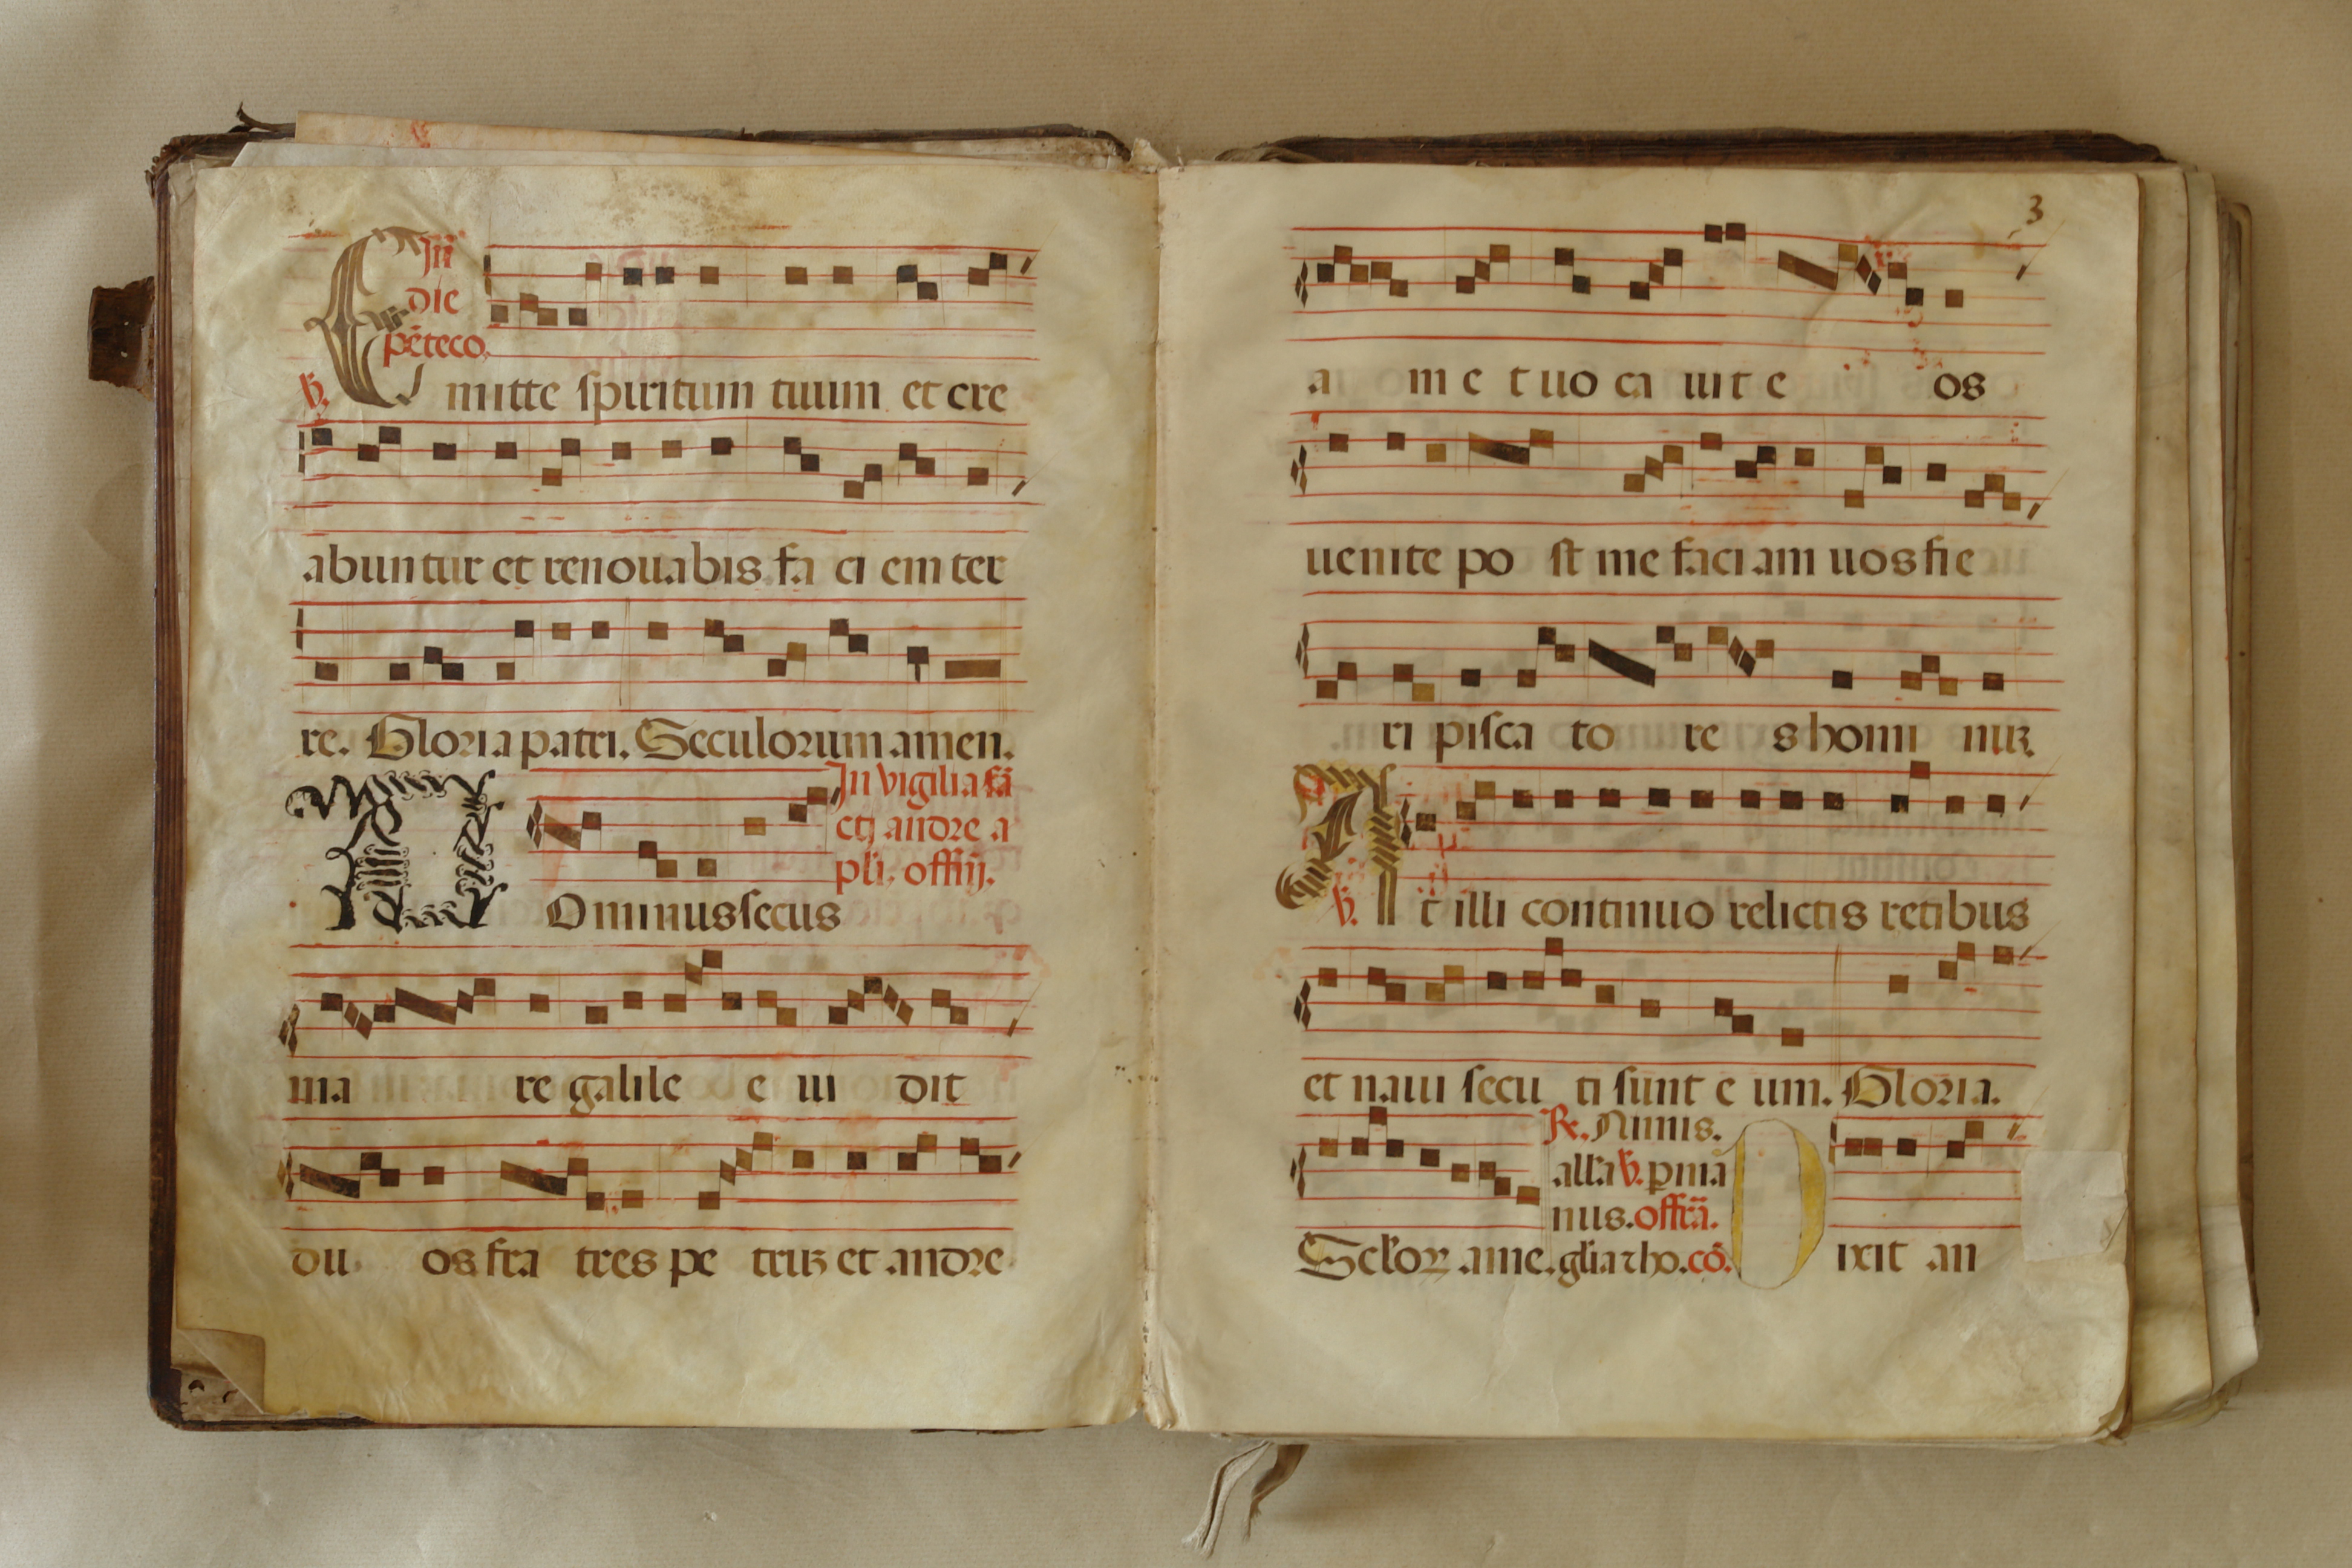 In
die
pēteco.
℣. Emitte spiritum tuum et cre
abuntur et renouabis fa ci em ter
re. Gloria patri. Seculorum amen.
In vigilia sā
cti andre a
pli. offiij.
Ominus secus
ma re galile e ui dit
du os fra tres pe truꝫ et andre
3
a m e t uo ca uit e os
uenite po st me faci am uos fie
ri pisca to re s homi nuꝫ
℣. Et illi continuo relictis retibus
et naui secu ti sunt e um. Gloria.
℟. Nimis.
all'a ℣. p ma
nus. offrā.
Sc'loꝝ ame. gl'ia ⁊ ho. cō. Dixit an